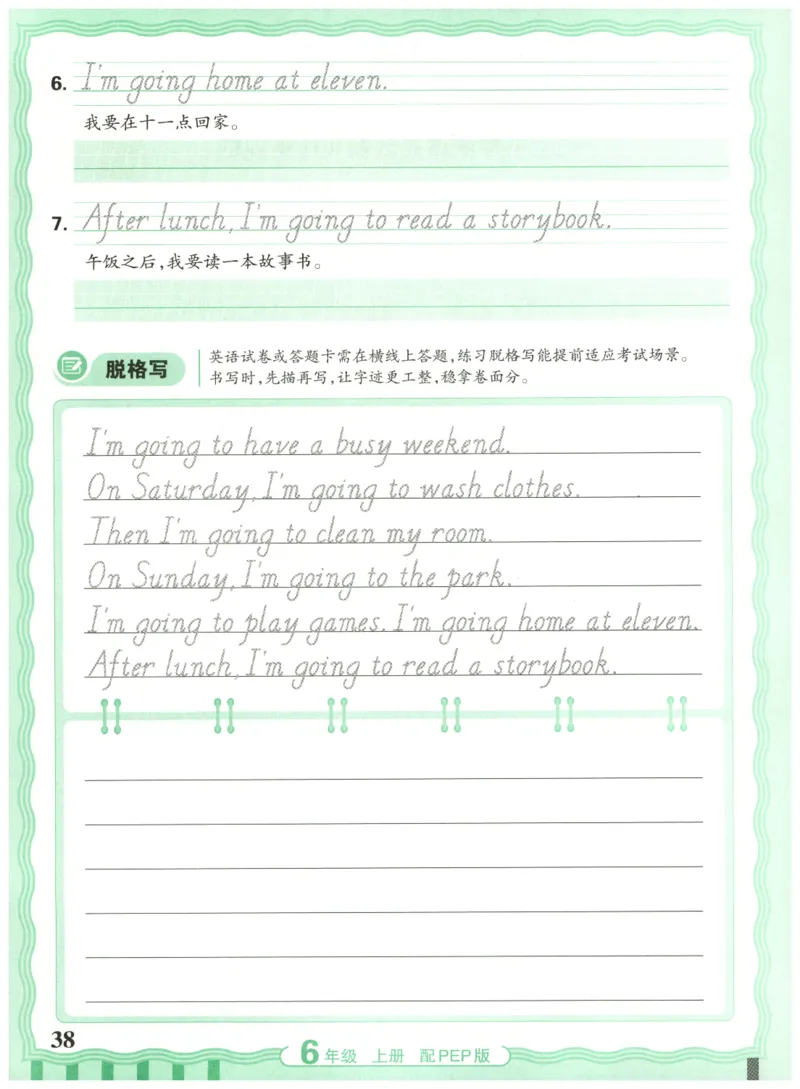 6. I'm going home at eleven.
我要在十一点回家。
7. After lunch, I'm going to read a storybook.
午饭之后,我要读一本故事书。
脱格写
英语试卷或答题卡需在横线上答题,练习脱格写能提前适应考试场景。
书写时,先描再写,让字迹更工整,稳拿卷面分。
I'm going to have a busy weekend.
On Saturday, I'm going to wash clothes.
Then I'm going to clean my room.
On Sunday, I'm going to the park.
I'm going to play games. I'm going home at eleven.
After lunch, I'm going to read a storybook.
38
6年级 上册 配PEP版